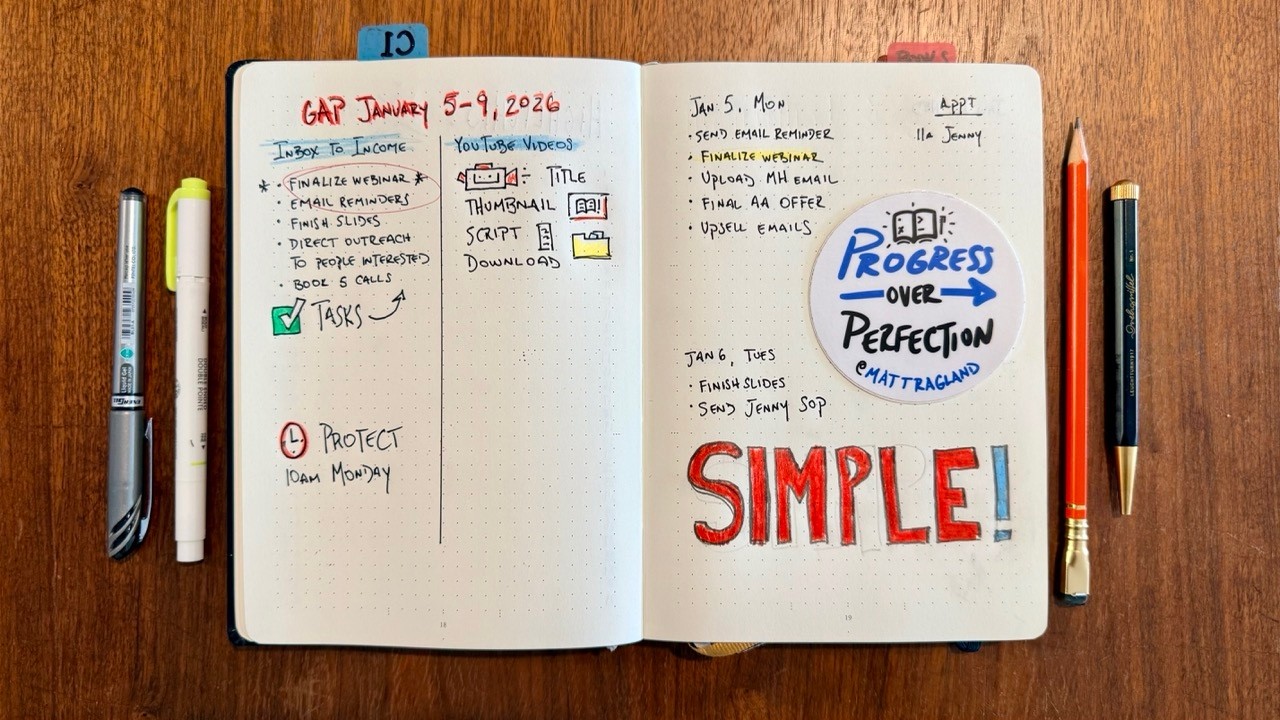 C1
Book 5
GAP JANUARY 5-9, 2026
INBOX TO INCOME
* • FINALIZE WEBINAR *
• EMAIL REMINDERS
• FINISH SLIDES
• DIRECT OUTREACH
TO PEOPLE INTERESTED
• BOOK 5 CALLS
TASKS
PROTECT
10AM MONDAY
YOUTUBE VIDEOS
TITLE
THUMBNAIL
SCRIPT
DOWNLOAD
18
JAN 5, MON
• SEND EMAIL REMINDER
• FINALIZE WEBINAR
• UPLOAD MH EMAIL
• FINAL AA OFFER
• UPSELL EMAILS
APPT
11a JENNY
PROGRESS
OVER
PERFECTION
@MATTRAGLAND
JAN 6, TUES
• FINISH SLIDES
• SEND JENNY SOP
SIMPLE!
19
Liquid Gel
ENERGEL
DOUBLE POINTE
LEUCHTTURM1917
Drehgriffel